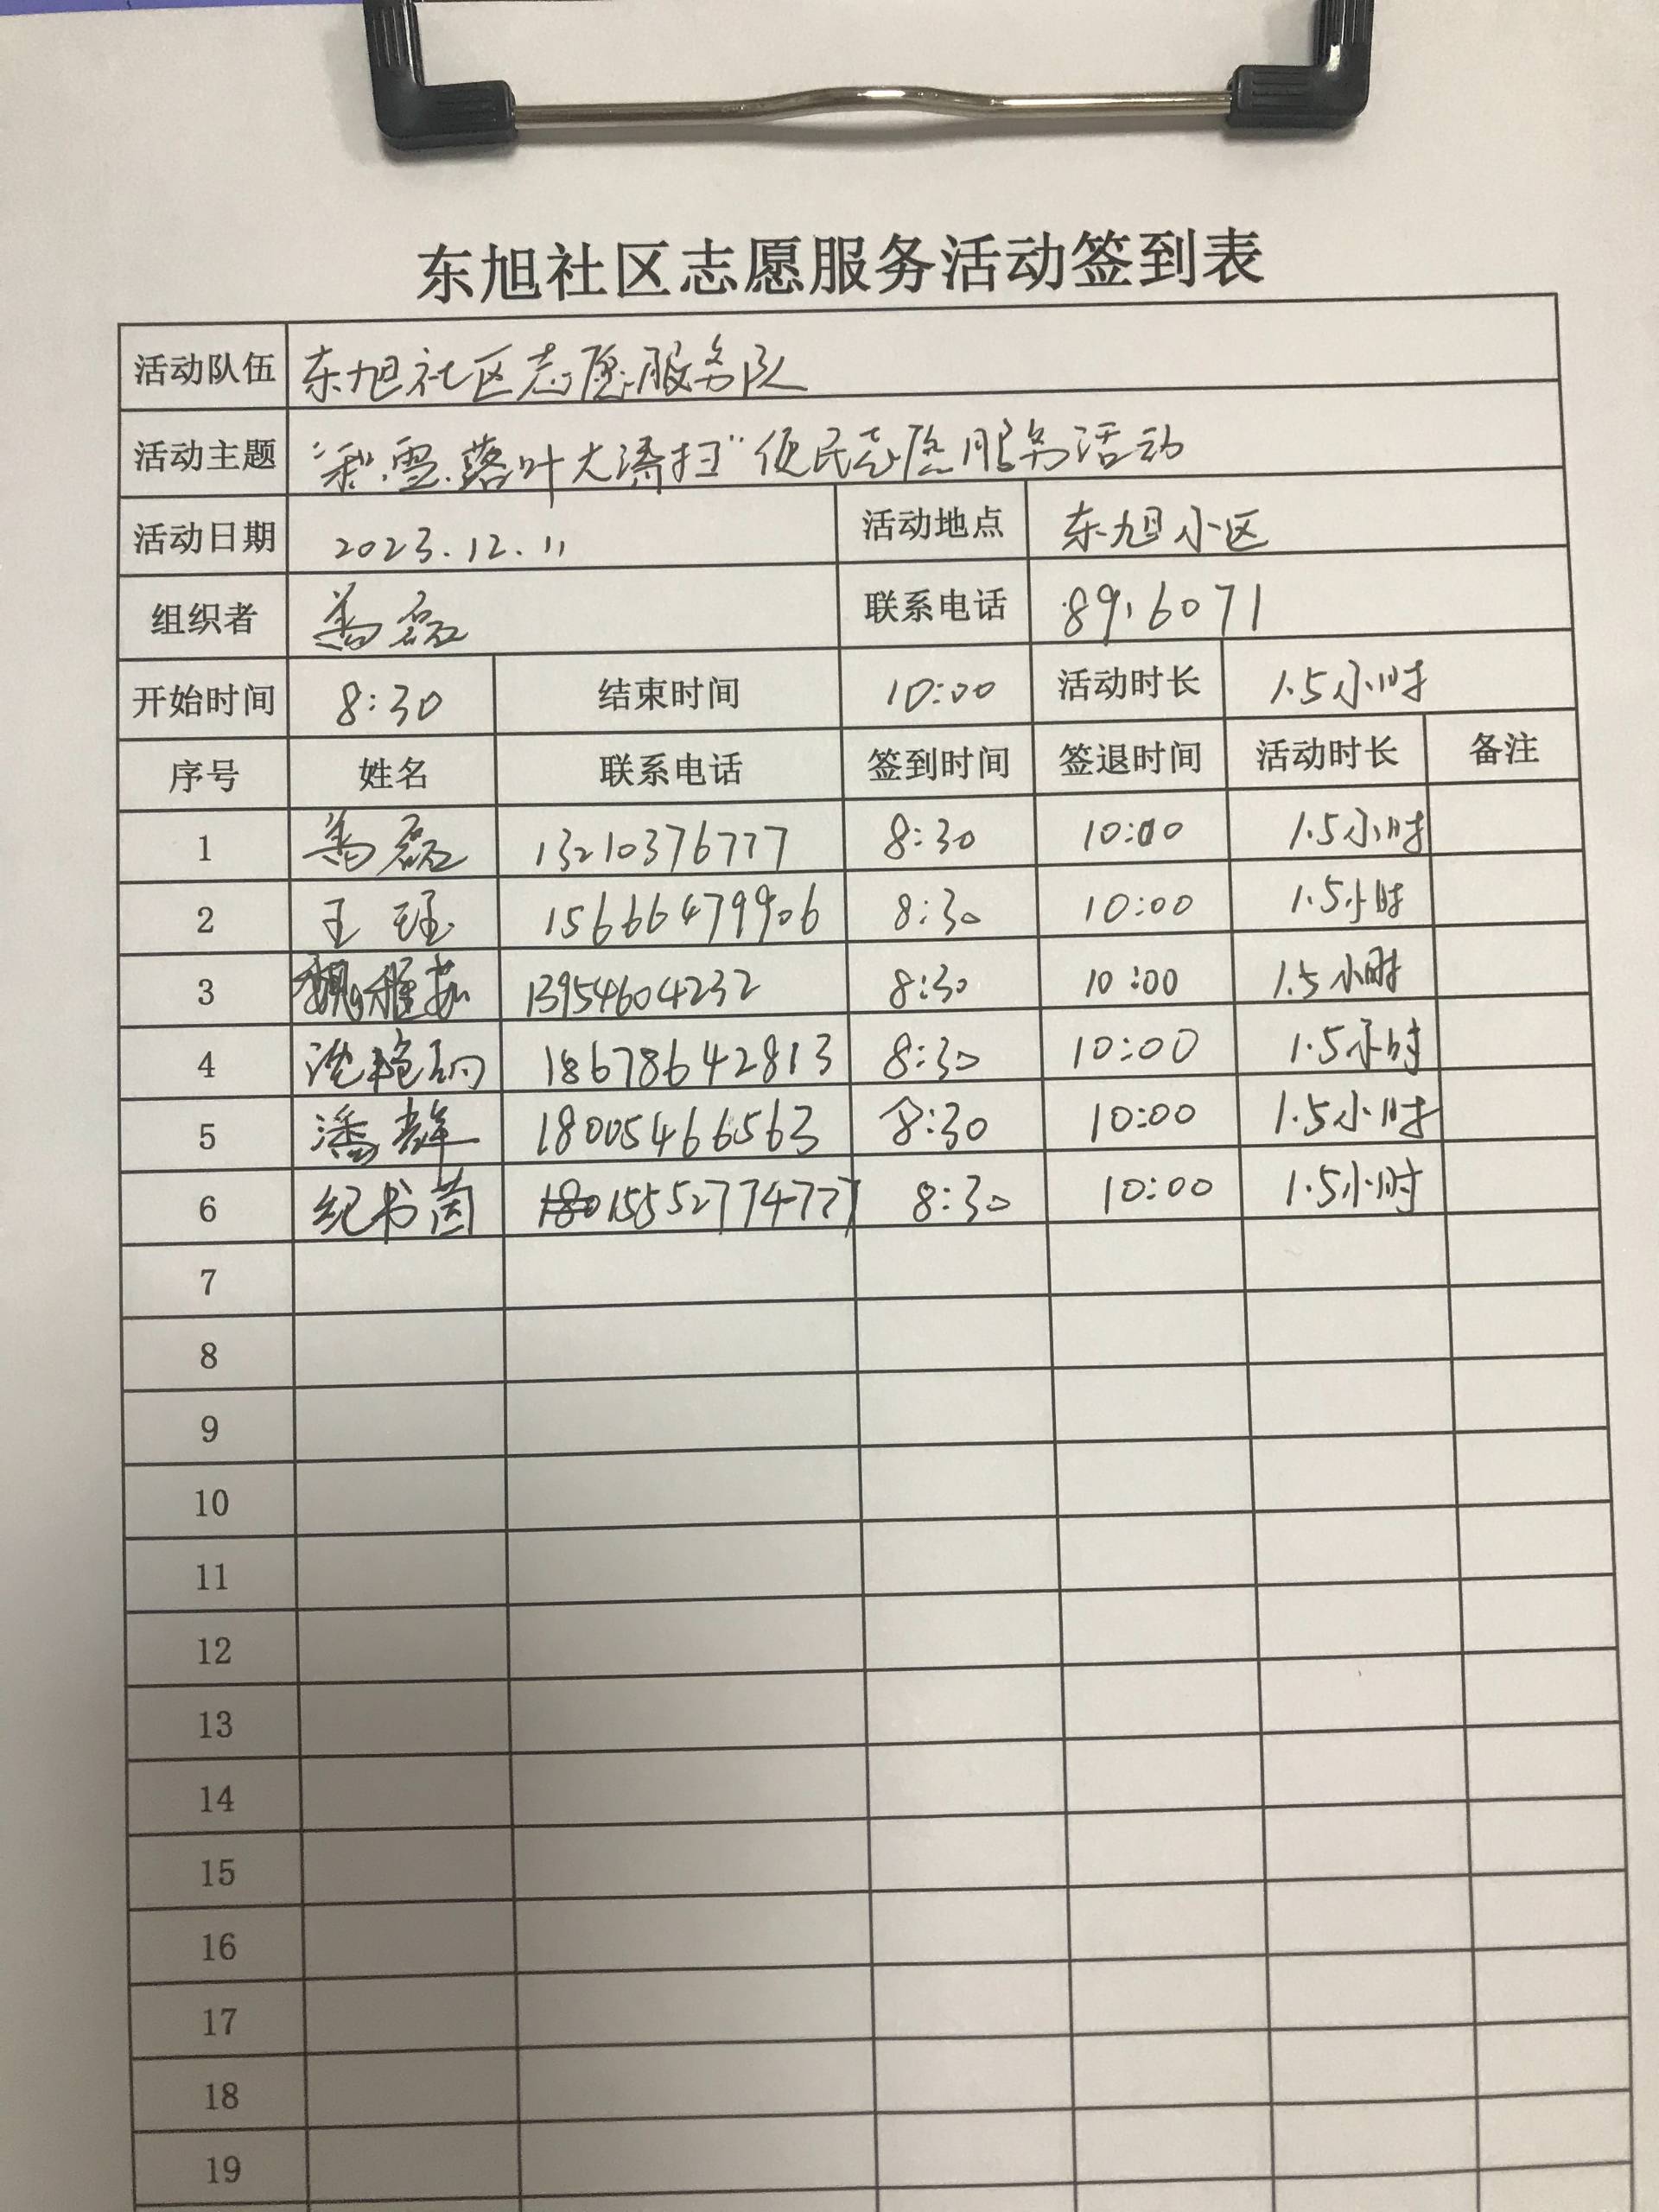 东旭社区志愿服务活动签到表
活动队伍 东旭社区志愿服务队
活动主题 “积雪落叶大清扫”便民志愿服务活动
活动日期 2023.12.11 活动地点 东旭小区
组织者 磊 联系电话 8916071
开始时间 8:30 结束时间 10:00 活动时长 1.5小时
序号 姓名 联系电话 签到时间 签退时间 活动时长 备注
1 磊 13210376777 8:30 10:00 1.5小时
2 王 15666479906 8:30 10:00 1.5小时
3 魏雅茹 13954604232 8:30 10:00 1.5小时
4 沈艳 18678642813 8:30 10:00 1.5小时
5 潘群 18005466563 8:30 10:00 1.5小时
6 纪书茵 15552774777 8:30 10:00 1.5小时
7
8
9
10
11
12
13
14
15
16
17
18
19